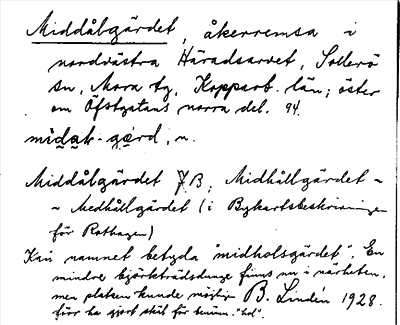 Middålgärdet, åkerremsa i
nordvästra Häradsarvet, Sollerö
sn, Mora tg, Kopparb. län; öster
om Öfstgatans norra del. 94.
mìdạk-gẹrd, n.
Middålgärdet B, Midhållgärdet ~
~ Medhållgärdet (i Bykartsbeskrivningen
för Rothagen)
Kan namnet betyda "midholsgärdet". En
mindre björkträdsdunge finns nu i närheten,
men platsen kunde möjligen B. Lindén 1928.
förr ha gjort skäl för benämn. "hol".